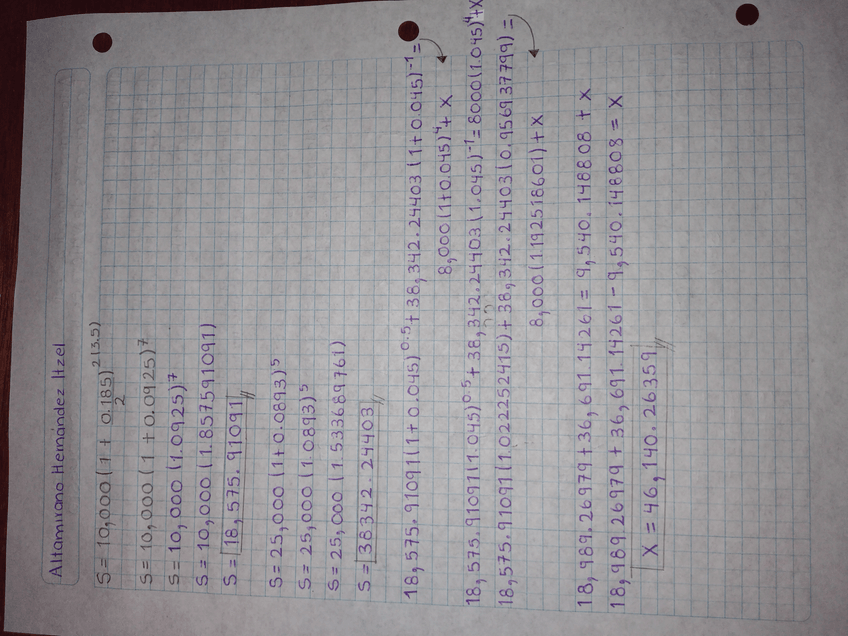 Altamirano Hernández Itzel
S = 10,000 (1 + 0.185/2)^2(3.5)
S = 10,000 (1 + 0.0925)^7
S = 10,000 (1.0925)^7
S = 10,000 (1.857591091)
S = 18,575.91091
S = 25,000 (1+0.0893)^5
S = 25,000 (1.0893)^5
S = 25,000 (1.533689761)
S = 38342.24403
18,575.91091(1+0.045)^0.5 + 38,342.24403 (1+0.045)^-1 =
8,000 (1+0.045)^4 + x
18,575.91091(1.045)^0.5 + 38,342.24403 (1.045)^-1 = 8000 (1.045)^4 + x
18,575.91091 (1.022252415) + 38,342.24403 (0.956937799) =
8,000 (1.192518601) + x
18,989.26979 + 36,691.14261 = 9,540.148808 + x
18,989.26979 + 36,691.14261 - 9,540.148808 = x
x = 46,140.26359